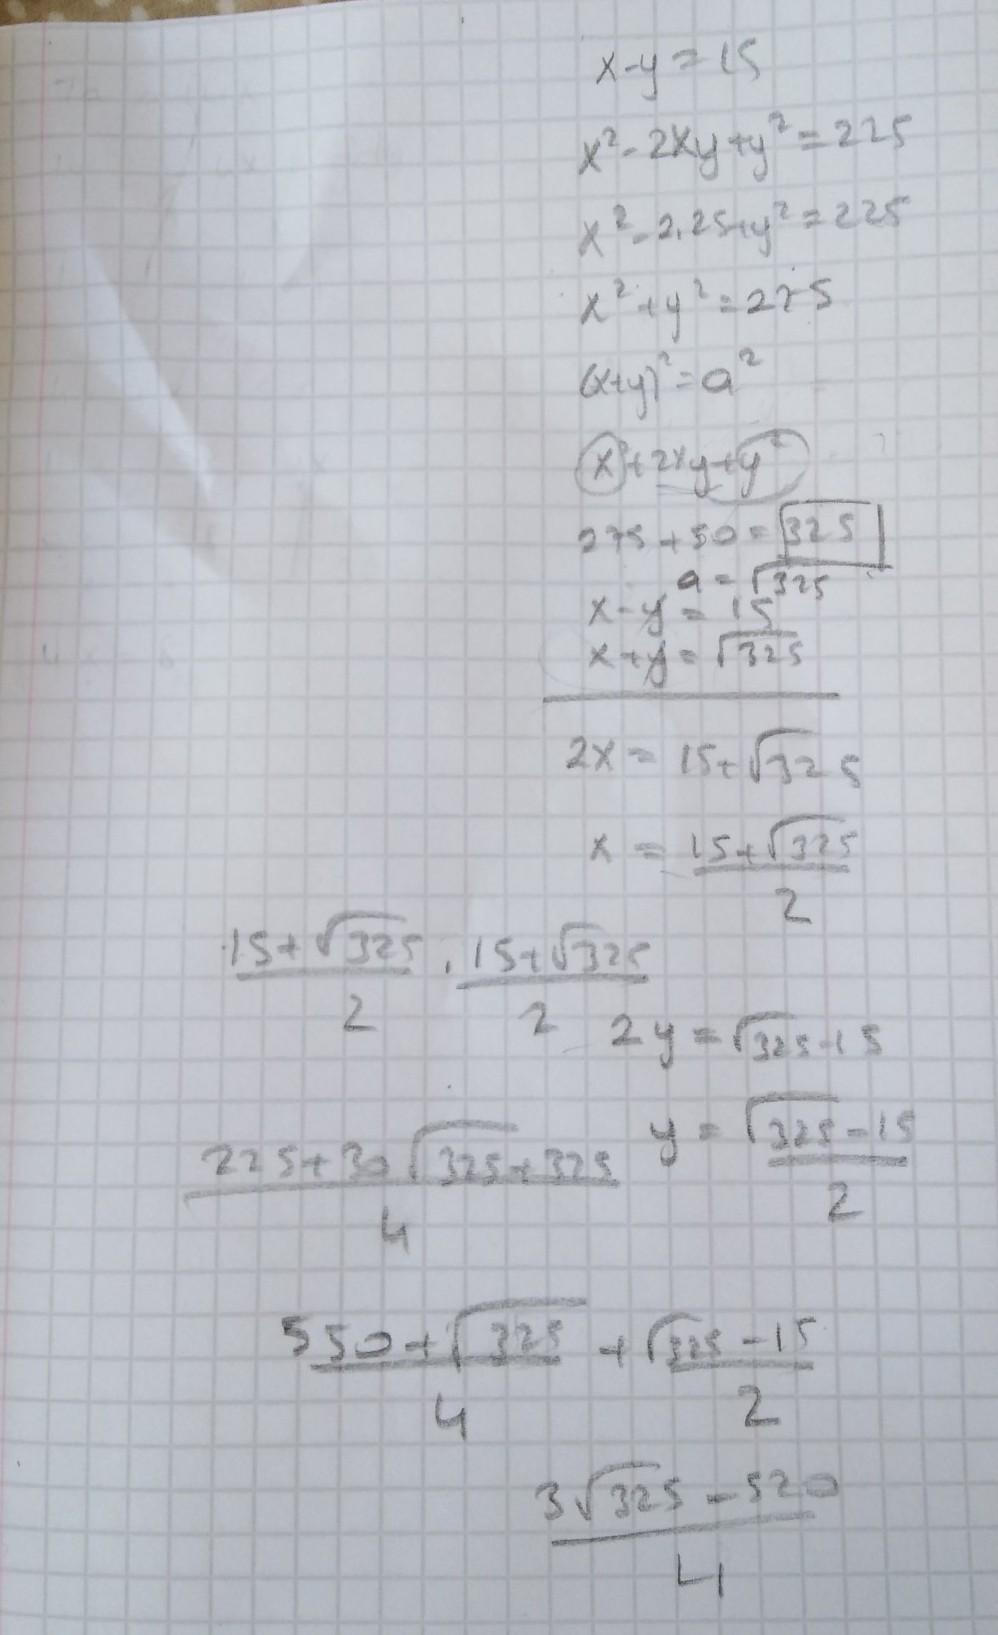 x-y=15
x²-2xy+y²=225
x²-2.25+y²=225
x²+y²=275
(x+y)²=a²
x²+2xy+y²
275+50=325
a=√325
x-y=15
x+y=√325
2x=15+√325
x=15+√325
2
15+√325 . 15+√325
2 2
2y=√325-15
y=√325-15
2
225+30√325+325
4
550+√325 + √325-15
4 2
3√325-520
4